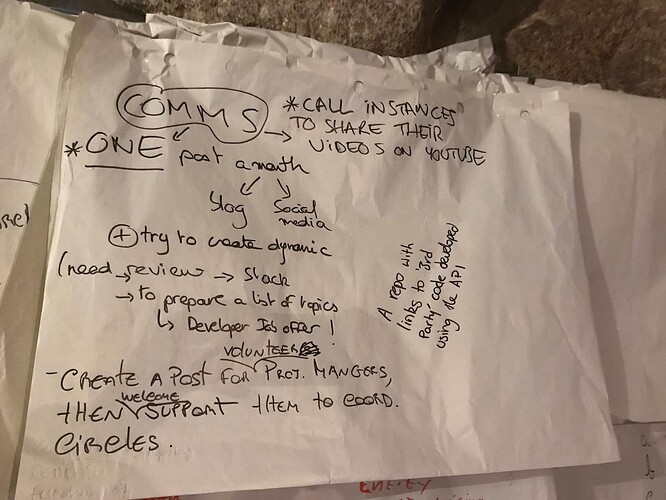 COMMS
* CALL INSTANCES
TO SHARE THEIR
VIDEOS ON YOUTUBE
* ONE post a month
blog social media
+ try to create dynamic
(need → review → slack
→ to prepare a list of topics
↳ Developer Job offer !
VOLUNTEER
- CREATE A POST FOR PROJ. MANGERS,
welcome
THEN SUPPORT THEM TO COORD.
CIRCLES.
A repo with
links to 3rd
Party' code developed
using the API